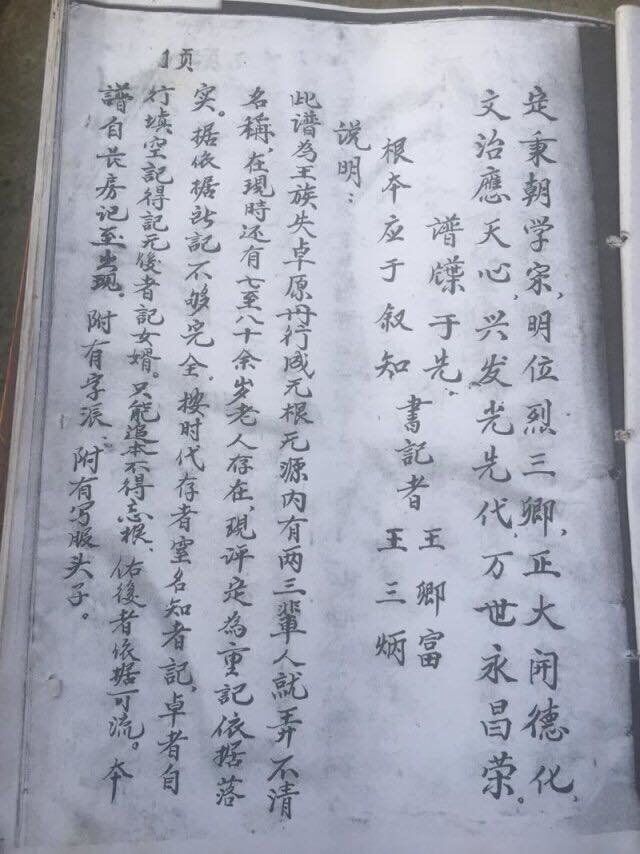 定秉朝学宗，明位烈三卿，正大开德化，
文治應天心，兴发光先代，万世永昌荣。
谱牒于先。
根本应于叙知
書記者 王卿富
王三炳
说明：
此谱為王族失卓原行成无根无源内有两三輩人就弄不清
名稱，在現時还有七至八十余岁老人存在，現评定為重記依据落
实。据依据所記不够完全，按时代存者室名知者記，卓者自
行填空記得記无後者記女婿。只能追本不得忘根，佑後者依据可流。本
譜自長房记至出現，附有字派，附有写服头子。
1页